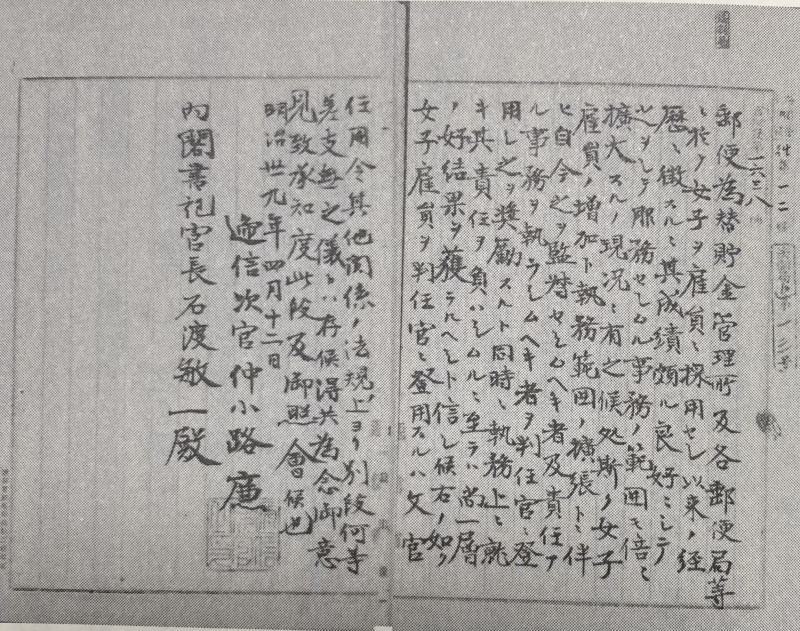 郵便為替貯金管理所及各郵便局等
ニ於ノ女子ヲ雇員ニ採用セシ以来ノ経
歴ニ徴スルニ其成績頗ル良好ニシテ
之ヲシテ服務セシムル事務ノ範囲モ倍ニ
擴大スルノ現況ニ有之候処斯ク女子
雇員ノ増加ト執務範囲ノ擴張トニ伴
ヒ自今之ヲ監督セシムヘキ者及責任ア
ル事務ヲ執ラシムヘキ者ヲ判任官ニ登
用シ之ヲ奨勵スルト同時ニ執務上ニ就
キ其責任ヲ負ハシムルニ至ラハ尚一層
ノ好結果ヲ獲ラルヘシト信シ候右ノ如ク
女子雇員ヲ判任官ニ登用スルハ文官
任用令其他関係ノ法規上ヨリ別段何等
差支無之儀ニハ存候得共為念御意
見致承知度此段及御照會候也
明治卅九年四月十二日
逓信次官仲小路廉
内閣書記官長石渡敏一殿